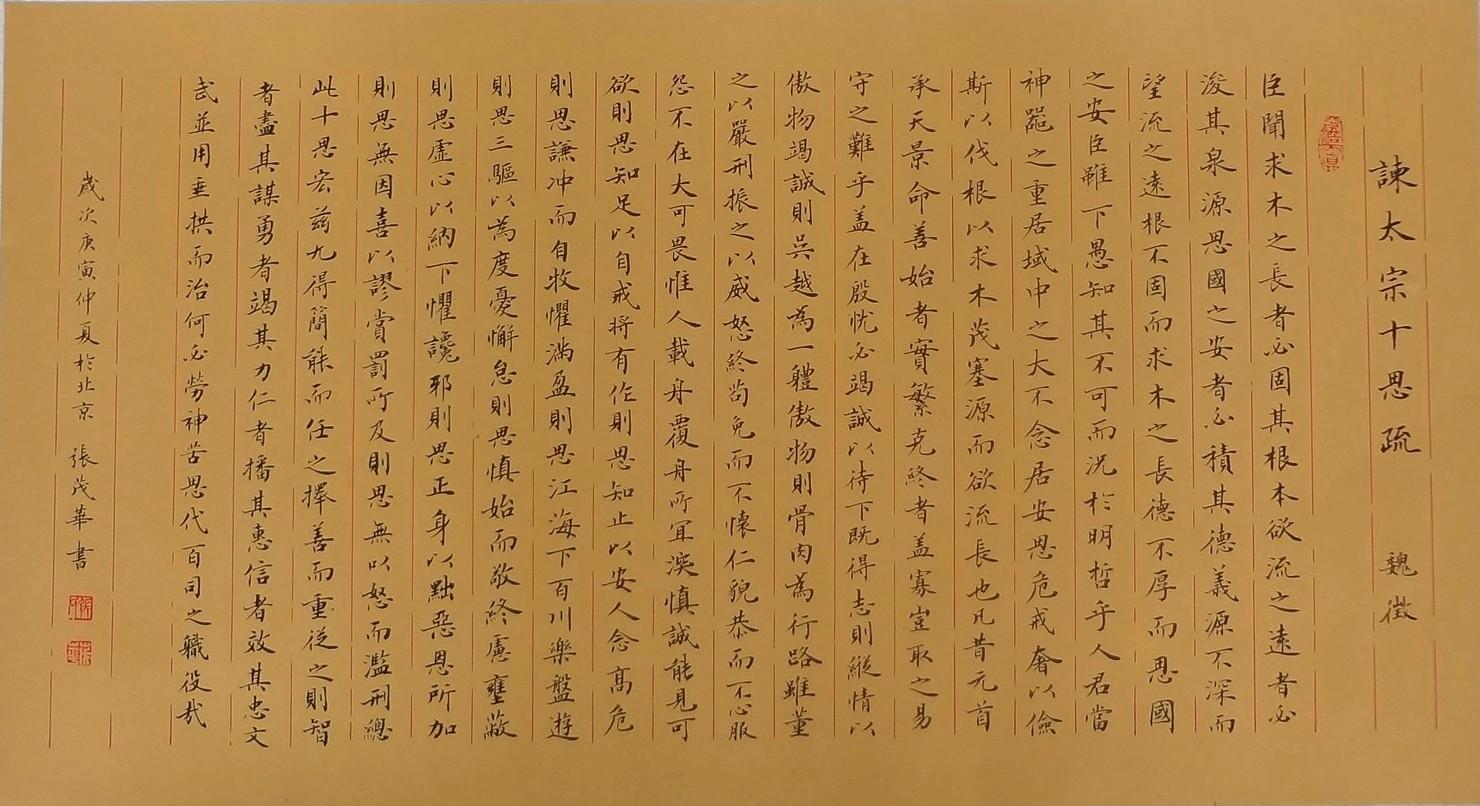 諫太宗十思疏 魏徵
臣聞求木之長者必固其根本欲流之遠者必
浚其泉源思國之安者必積其德義源不深而
望流之遠根不固而求木之長德不厚而思國
之安臣雖下愚知其不可而況於明哲乎人君當
神器之重居域中之大不念居安思危戒奢以儉
斯以伐根以求木茂塞源而欲流長也凡昔元首
承天景命善始者實繁克終者盖寡豈取之易
守之難乎盖在殷忧必竭誠以待下既得志則縱情以
傲物竭誠則吳越為一體傲物則骨肉為行路雖董
之以嚴刑振之以威怒終苟免而不懷仁貌恭而不心服
怨不在大可畏惟人載舟覆舟所宜深慎誠能見可
欲則思知足以自戒將有作則思知止以安人念高危
則思謙冲而自牧懼滿盈則思江海下百川樂盤遊
則思三驅以為度憂懈怠則思慎始而敬終慮壅蔽
則思虛心以納下懼讒邪則思正身以黜惡恩所加
則思無因喜以謬賞罰所及則思無以怒而濫刑總
此十思宏茲九得簡能而任之擇善而重從之則智
者盡其謀勇者竭其力仁者播其惠信者效其忠文
武並用垂拱而治何必勞神苦思代百司之職役哉
歲次庚寅仲夏於北京 張茂華書